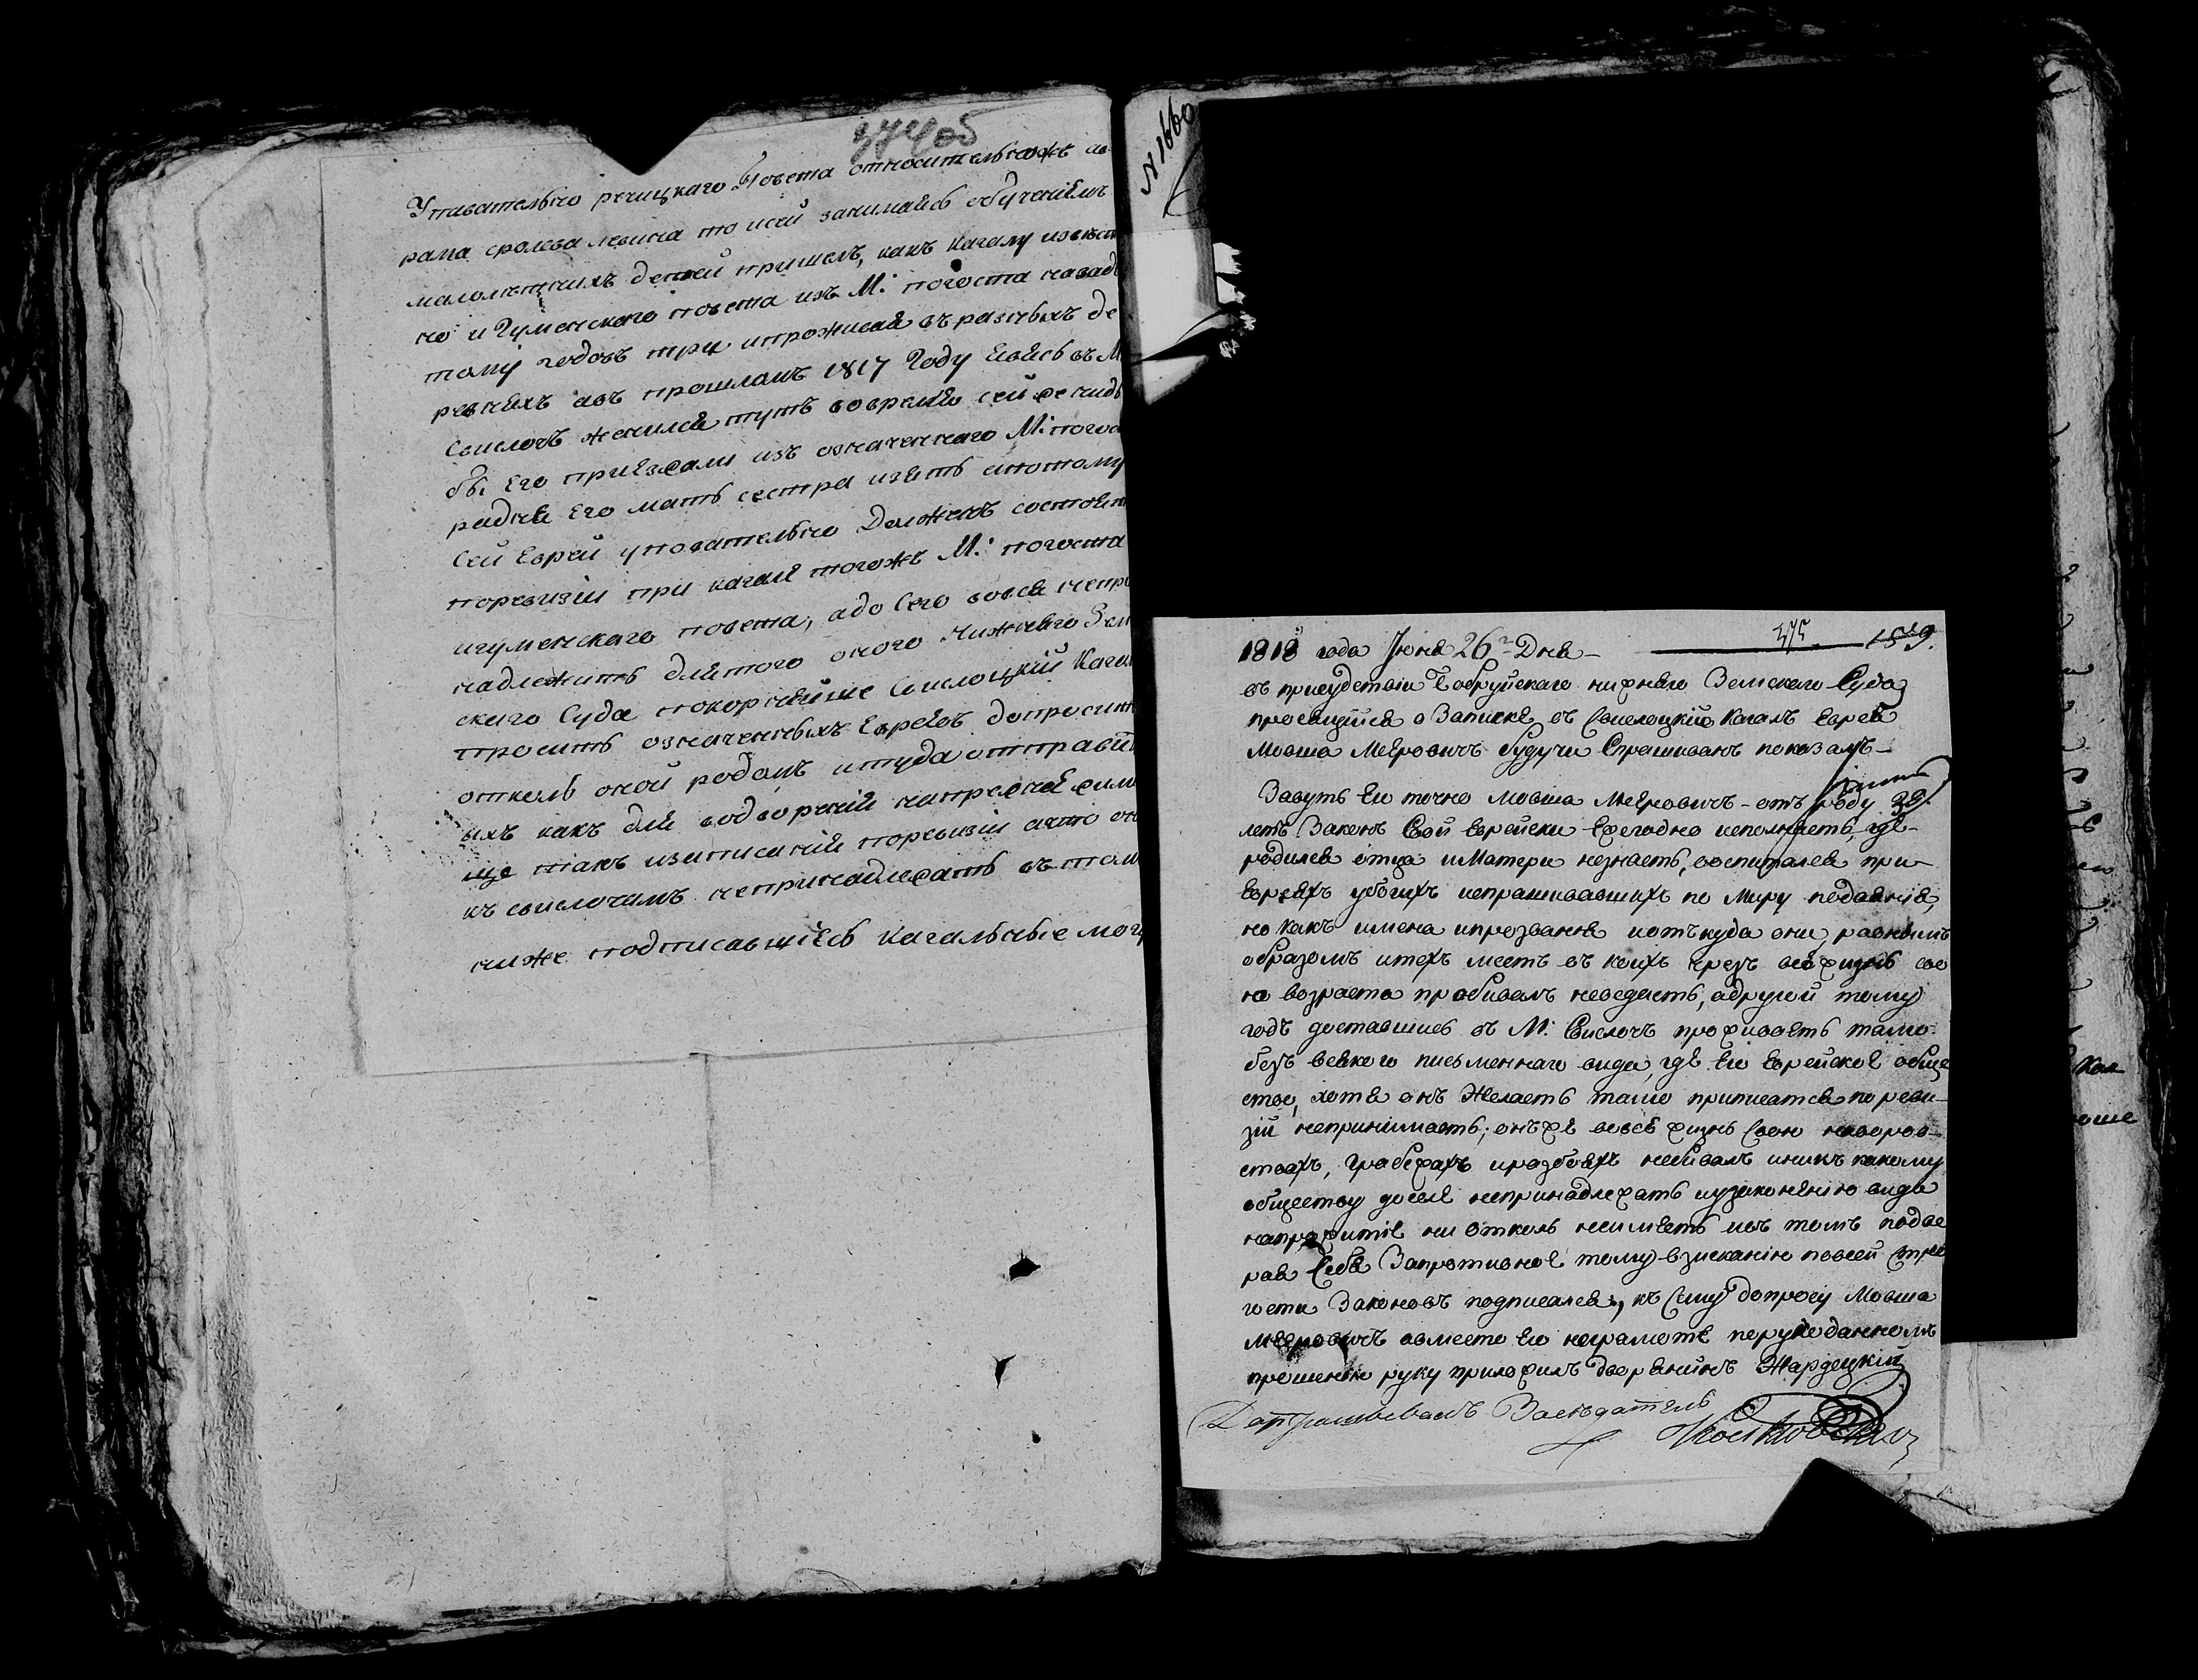 374об
Упавательно речицкаго Повета относительножъ ав
рама сролева левина то исей занимаясь обучениемъ
малолетнихъ детей пришелъ, какъ кагалу извест
но и Гуменского повета изъ М: погоста назадъ
тому годовъ три ипроживая въ разныхъ де
ревняхъ авъ прошломъ 1817 Году явясь въ М
Свислочъ женился тутъ вовремя сей
бы Его приезжали изъ означеннаго М: погос
Его мать сестра изять ипотому
Сей Еврей уповательно Долженъ состоять
поревизии при кагале тогожъ М: погоста
игуменскаго повета, адо Сего вовсе непри
надлежитъ длятого оного Нижняго Зем
скаго Суда покорнейше Свислоцкий Кагал
проситъ означенныхъ Евреевъ допросить
отколь оной родомъ итуда отправить
ихъ какъ для водворения напрежнее жили
ще такъ изаписания поревизии ачто они
къ свислочамъ непринадлежатъ въ том
ниже подписавшиесь кагальные могу
N 1660
1818 года Июня 26го Дня
375
1819.
въ присудствии Бобруйскаго нижняго Земского Суда
просящийся о Записке въ Свислоцкий Кагалъ Еврей
Мовша Меяровичъ будучи Спрашиванъ показалъ
Зовутъ Его точно Мовша Меяровичъ отъ роду 28
летъ Законъ Свой Еврейски Ежегодно исполняетъ, где
родился отца иматери незнаетъ, воспитался при
Евреяхъ убогихъ испрашивавшихъ по Миру подаяния,
но какъ имена ипрозвания иоткуда они, равнымъ
образомъ итехъ местъ въ коихъ чрезъ всю жизнь сво
ю возраста пробивалъ неведаетъ, адругой тому
годъ доставшись въ М: Свислочъ проживаетъ тамо
безъ всякого письменнаго вида, где Его Еврейское обще
ство, хотя онъ Желаетъ тамо приписатся по реви
зии непринимаетъ; онъже вовсю жизнь Свою наворов
ствахъ, Грабежахъ иразбояхъ небывалъ иникъ какому
обществу доселе непринадлежалъ иузаконению вида
напрожитие ни отколь неимеетъ ивъ томъ подве
ргая Себя Запротивное тому взысканию повсей стро
гости Законовъ подписался, къ Сему допросу Мовша
Меяровичъ авместо Его неграмоте порукоданномъ
прошению руку приложилъ дворянинъ Жардецкий
Допрашивалъ Заседатель